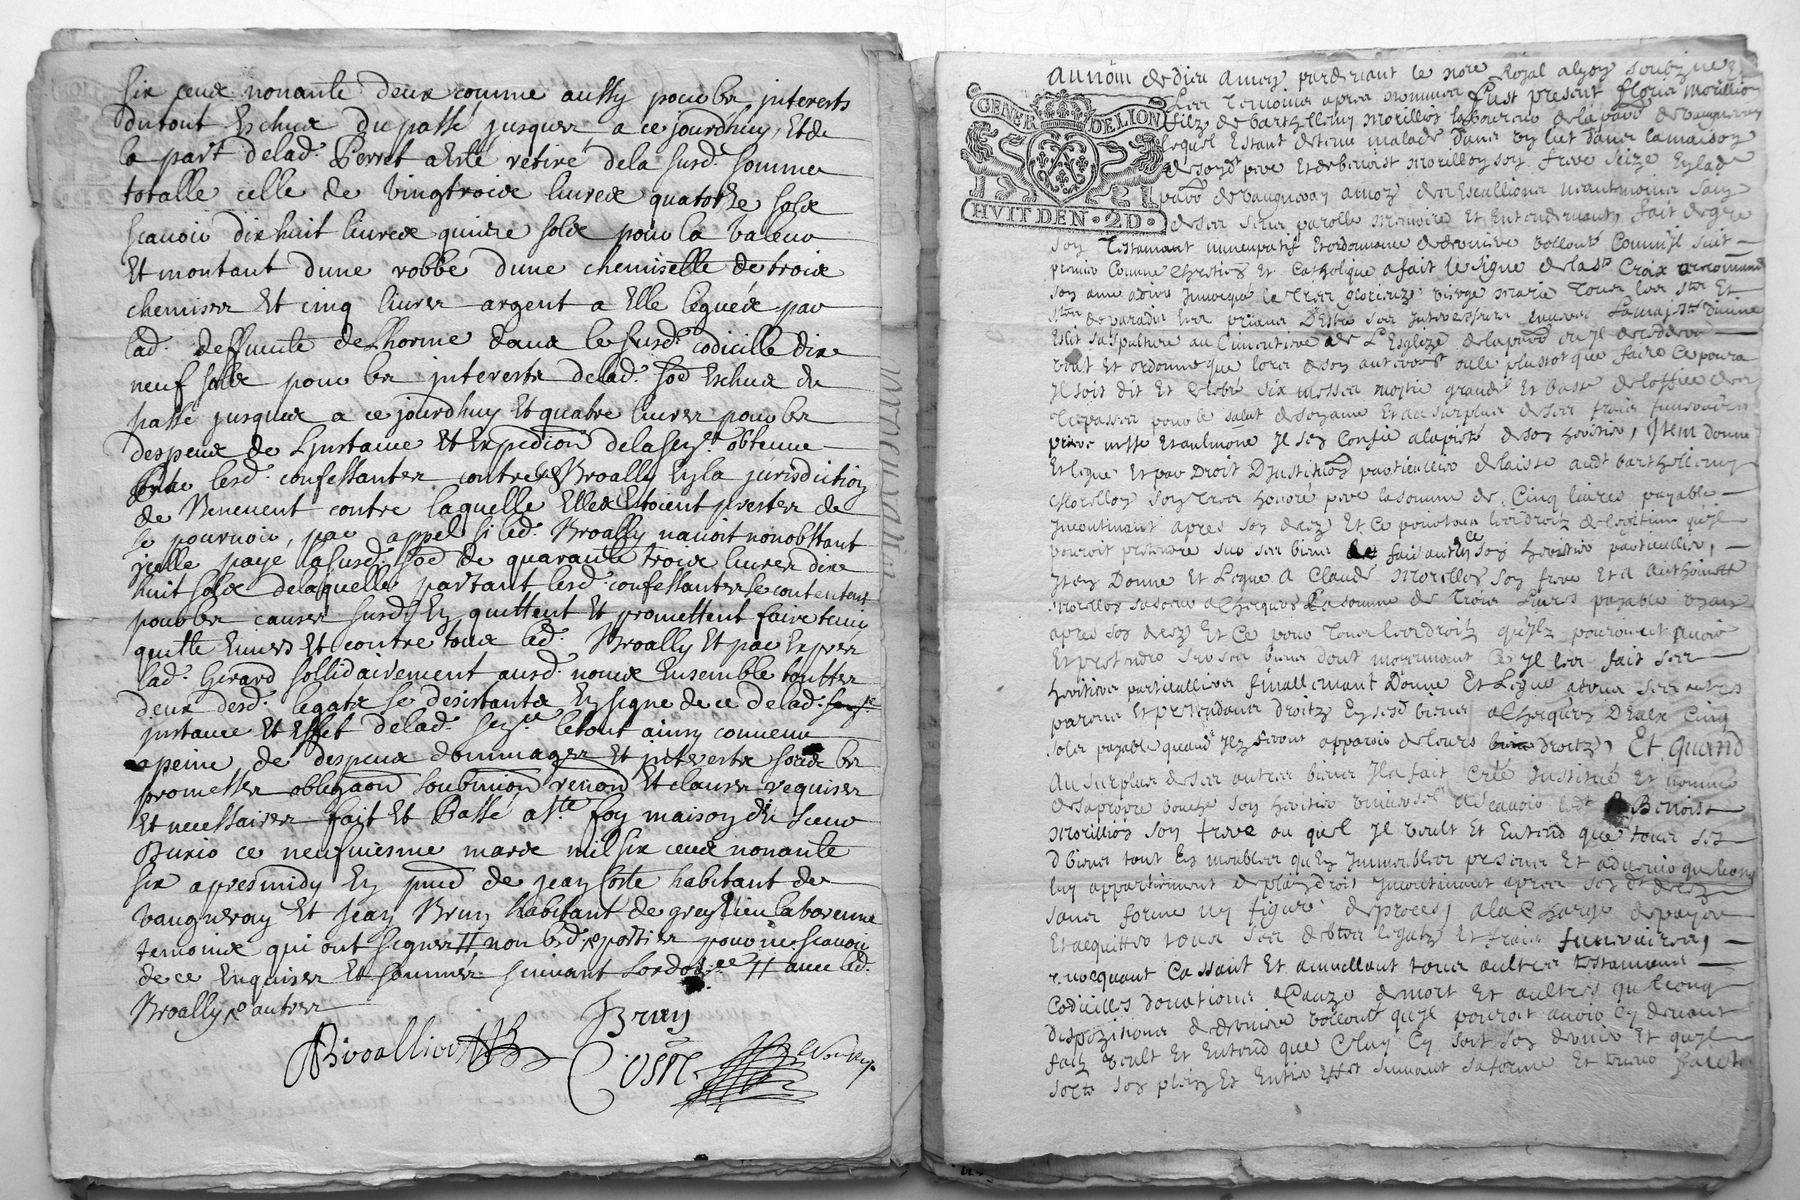 six cens nonante deux comme aussy pour les interests
du tout Escheux du passé jusques a ce jourdhuy, Et de
la part de lad. Perret a Esté retiré de la susd. somme
totalle celle de vingtrois livres quatorze solz
scavoir dix huit livres quinze solz pour la valeur
Et montant dune robbe dune chemisette de trois
chemises Et cinq livres argent a Elle leguées par
lad. deffunte de Lhorme dans le susd. codicille dix
neuf solz pour les interests de lad. so^e Escheus du
passé jusques a ce jourdhuy Et quatre livres pour les
despens de Linstance Et Expedition de la sen^ce obtenue
lesd. confessantes contre led. Broally En la jurisdiction
de Benevent contre laquelle Elles Estoient prestes de
se pourvoir, par appel si led. Broally n'avoit nonobstant
icelle payé la susd. so^e de quarante trois livres dix
huit solz de laquelle partant lesd. confessantes se contentent
pour les causes susd. En quittent Et promettent faire tenir
quitte Envers Et contre tous led. Broally Et par Exprès
lad. Girard sollidairement ausd. noms Ensemble touttes
deux desd. legatz se desistantes En signe de ce de lad.
instance Et Effet de lad. sen^ce le tout ainsy convenu
a peine de despens dommages Et interests soubz les
promesses obligaon soubmission renon Et clauses requises
Et necessaires fait Et Passé a S^te foy maison du sieur
Buxio ce neufviesme mars mil six cens nonante
six apres midy En pnce de jean Coste habitant de
vaugneray Et jean Brun habitant de greysieu la varenne
temoins qui ont signés # non lesd. parties pour ne scavoir
de ce Enquises Et sommées suivant Lordo^ce # avec led.
Broally & autres
Brun
Broallier
Coste
GENER DE LION
HVIT DEN · 2D ·
Au nom de dieu Amen pardevant le no^re Royal a Lyon soubzigné
& les Temoins apres nommes fust present fleury Morillion
filz de barthellemy Morillon laboureur de la par^e de vaugneray
lequel Estant detenu malade dans un lict dans la maison
de sond^t pere Et de benoist Morillon son frere size En lad^e
par^e de vaugneray Amoz neantmoins sain
de ses sens parolle memoire Et Entendement, fait de gre
son Testamant nuncupatif Et ordonnance de derniere vollonté Comme sen suit
premier Comme Chrestien Et Catholique a fait le signe de la s^te Croix recomandé
son ame a dieu Invocqué la Tres glorieuze vierge Marie Tous les s^tz Et
s^tes de paradis les priant D'Estre ses Intercesseurs envers sa majesté divine
Eslit sa sepulture au Cimentiere de L'Esglize de lad par^e ou Il decedera
veut Et ordonne que lors de son anterrem^t ou le plustot que faire Ce poura
Il soit dit Et celebré six messes moitié grande Et basse de loffice des
Trepasses pour le salut de son ame Et au surplus de ses frais funeraires
prieres messe Et aulmone Il s'en Confie a la pieté de son heritier, Item donne
Et legue Et par Droit D'Institution particuliere delaisse aud^t barthellemy
Morillon son Tres honoré pere la somme de Cinq livres payable
Incontinant apres son decez Et Ce pour tous les droitz de legitime qu'il
pouroit pretendre sur ses biens le faisant En Ce son heritier particullier,
Item Donne Et Legue A Claude Morillon son frere Et A Anthoinette
Morillon sa soeur a Chacun La somme de Trois Livres payable un an
apres son decez Et Ce pour Tous les droitz qu'ilz pouroient avoir
Et pretendre sur ses biens dont moyennant Ce Il les fait ses
heritiers particulliers finallemant Donne Et Legue a tous ses autres
parens Et pretendans droitz En sesd biens a Chacun D'Eulx Cinq
solz payable quand Ilz feront apparoir de leurs droitz, Et quand
Au surplus de ses autres biens Il a fait Créé Institué Et nommé
de sa propre bouche son heritier universel Ascavoir led^t Benoist
Morillion son frere au quel Il veult Et Entend que tous ses
d biens tout En meubles qu'En Immeubles presens Et advenir quelconq
luy appartiennent de plain droit Incontinant apres son d^t decez
sans forme ny figure de proces, a la Charge de payer
Et acquitter tous ses debtes legatz Et frais funeraires,
revocquant Cassant Et annullant tous aultres testamens
Codicilles donations a Cauze de mort Et aultres quelconq
dispozitions de derniere vollonté qu'il pouroit avoir Cy devant
faitz veult Et Entend que Celuy Cy soit son dernier Et qu'il
sorte son plein Et Entier Effet suivant sa forme Et teneur faict